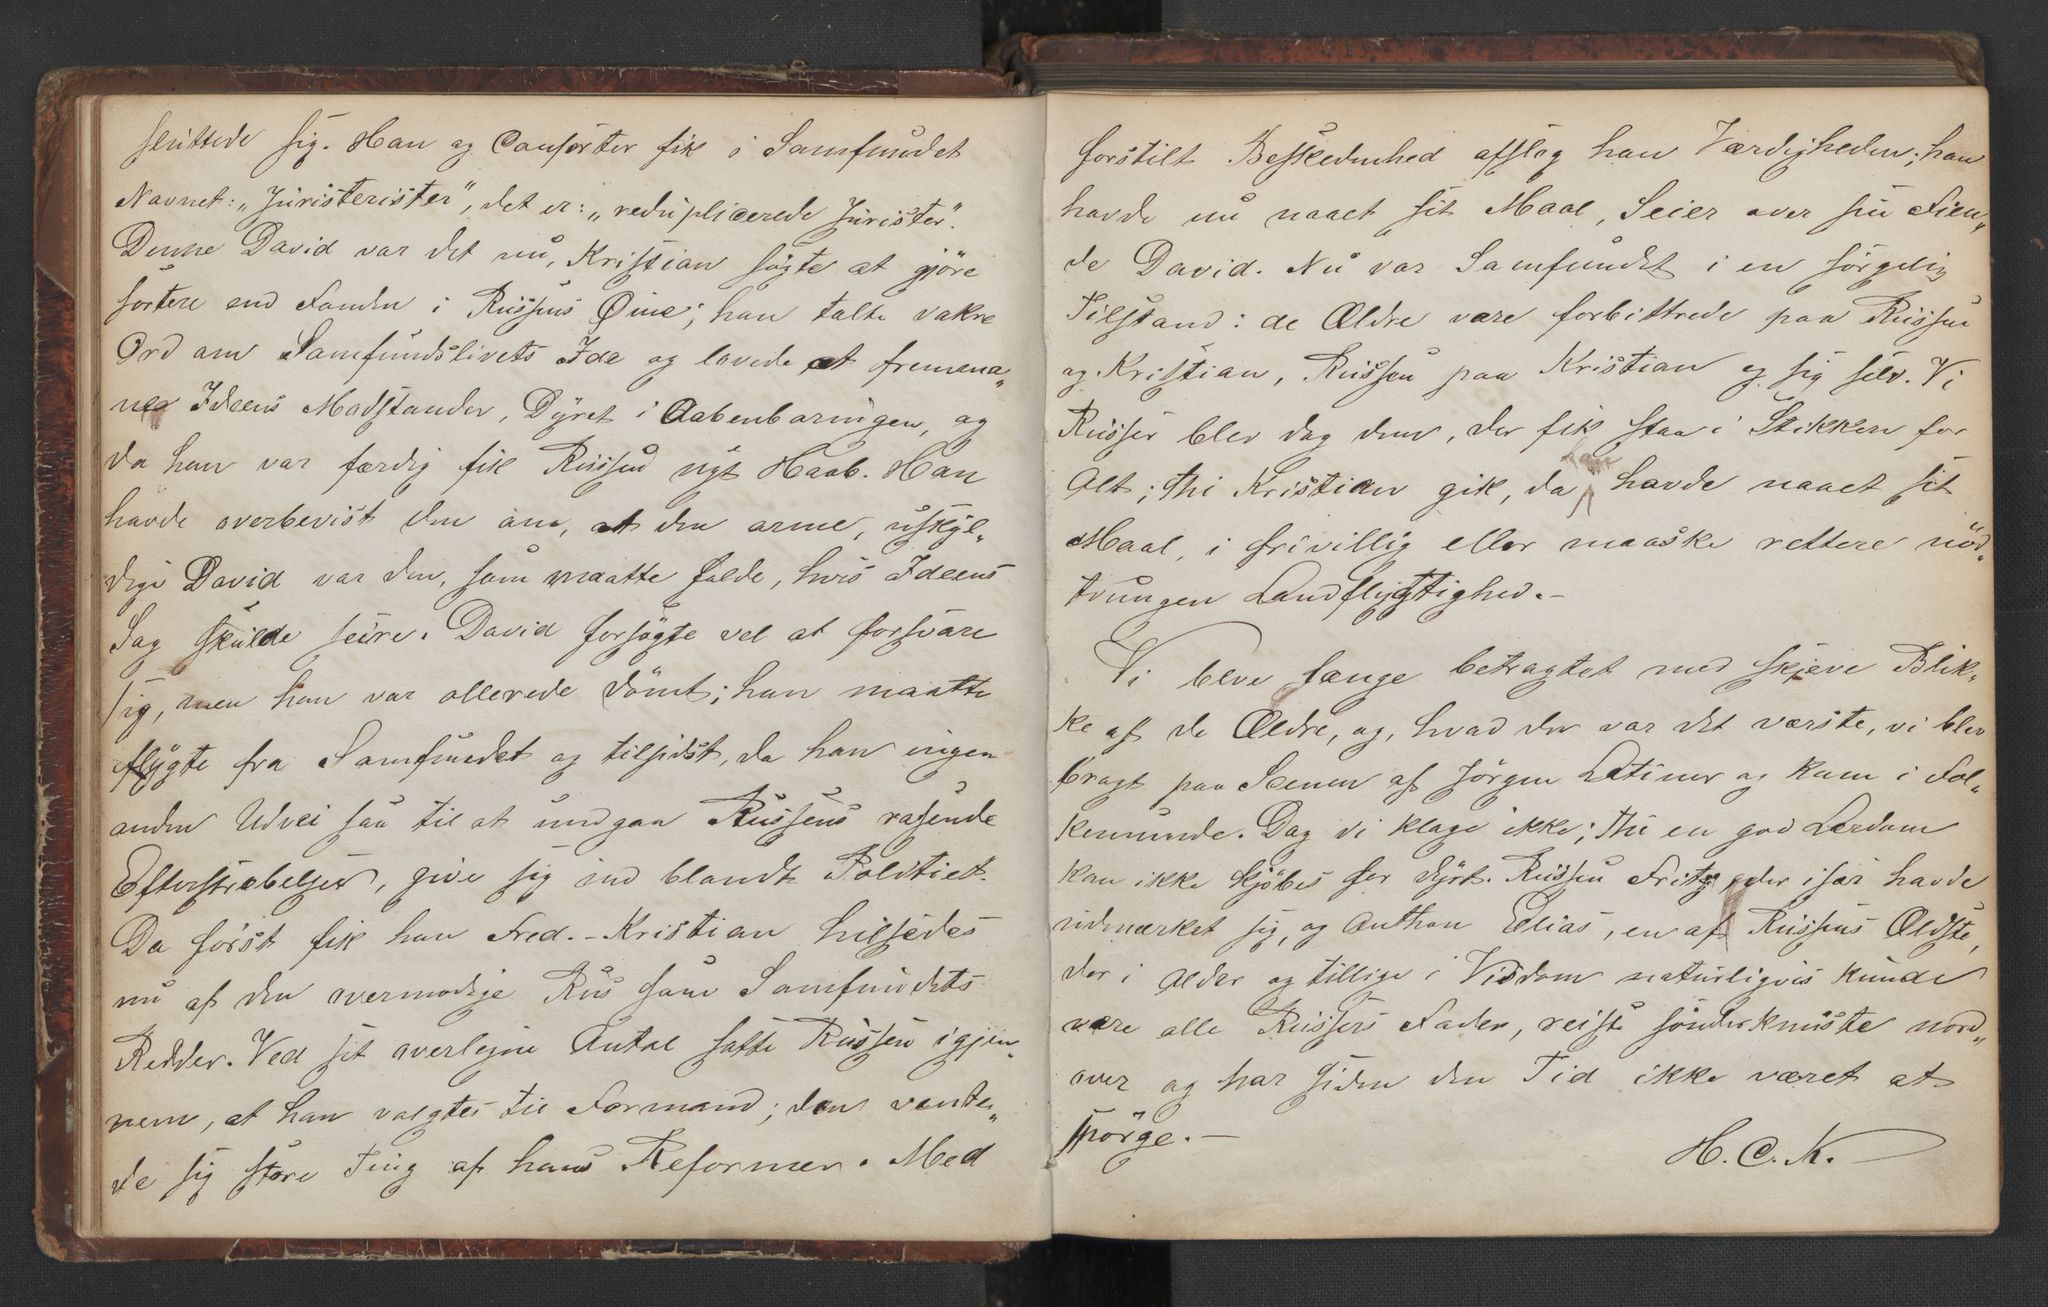 sluttede sig. Han og Consorter fik i Samfundet
Navnet: „Juristerister”, det er: „reduplicerede Jurister”.
Denne David var det nu, Kristian søgte at gjöre
sortere end Fanden i Russens Øine; han talte vakre
Ord om Samfundslivets Ide og lovede at fremma„
ne Ideens Modstander, Dyret i Aabenbaringen, og
da han var færdig fik Russen nyt Haab. Han
havde overbevist den om, at den arme, uskyl„
dige David var den, som maatte falde, hvis Ideens
Sag skulde seire. David forsøgte vel at forsvare
sig, men han var allerede dömt; han maatte
flygte fra Samfundet og tilsidst, da han ingen
anden Udvei saa til at undgaa Russens rasende
Efterstræbelser, give sig ind blandt Politiet.
Da først fik han Fred. – Kristian hilsedes
nu af den overmodige Rus som Samfundets
Redder. Ved sit overlegne Antal satte Russen igjen„
nem, at han valgtes til Formand; den vente„
de sig store Ting af hans Reformer. Med
forstilt Beskedenhed afslog han Værdigheden; han
havde nu naaet sit Maal, Seier over sin Fien„
de David. Nu var Samfundet i en sörgelig
Tilstand: de Ældre vare forbittrede paa Russen
og Kristian, Russen paa Kristian og sig selv. Vi
Russer blev dog dem, der fik staa i Stikken for
Alt; thi Kristian gik, da han havde naaet sit
Maal, i frivillig eller maaske rettere nöd„
tvungen Landflygtighed. –
Vi bleve længe betragtet med skjeve Blik„
ke af de Ældre, og, hvad der var det værste, vi blev
bragt paa Scenen af Jörgen Latiner og kom i Fol„
kemunde. Dog vi klage ikke; thi en god Lærdom
kan ikke kjöbes for dyrt. Russen Fritz, der især havde
udmærket sig, og Anthon Elias, en af Russens Ældste,
der i Alder og tillige i Visdom naturligvis kunde
være alle Russers Fader, reiste sönderknuste nord„
over og har siden den Tid ikke været at
spörge. –
H. C. K.